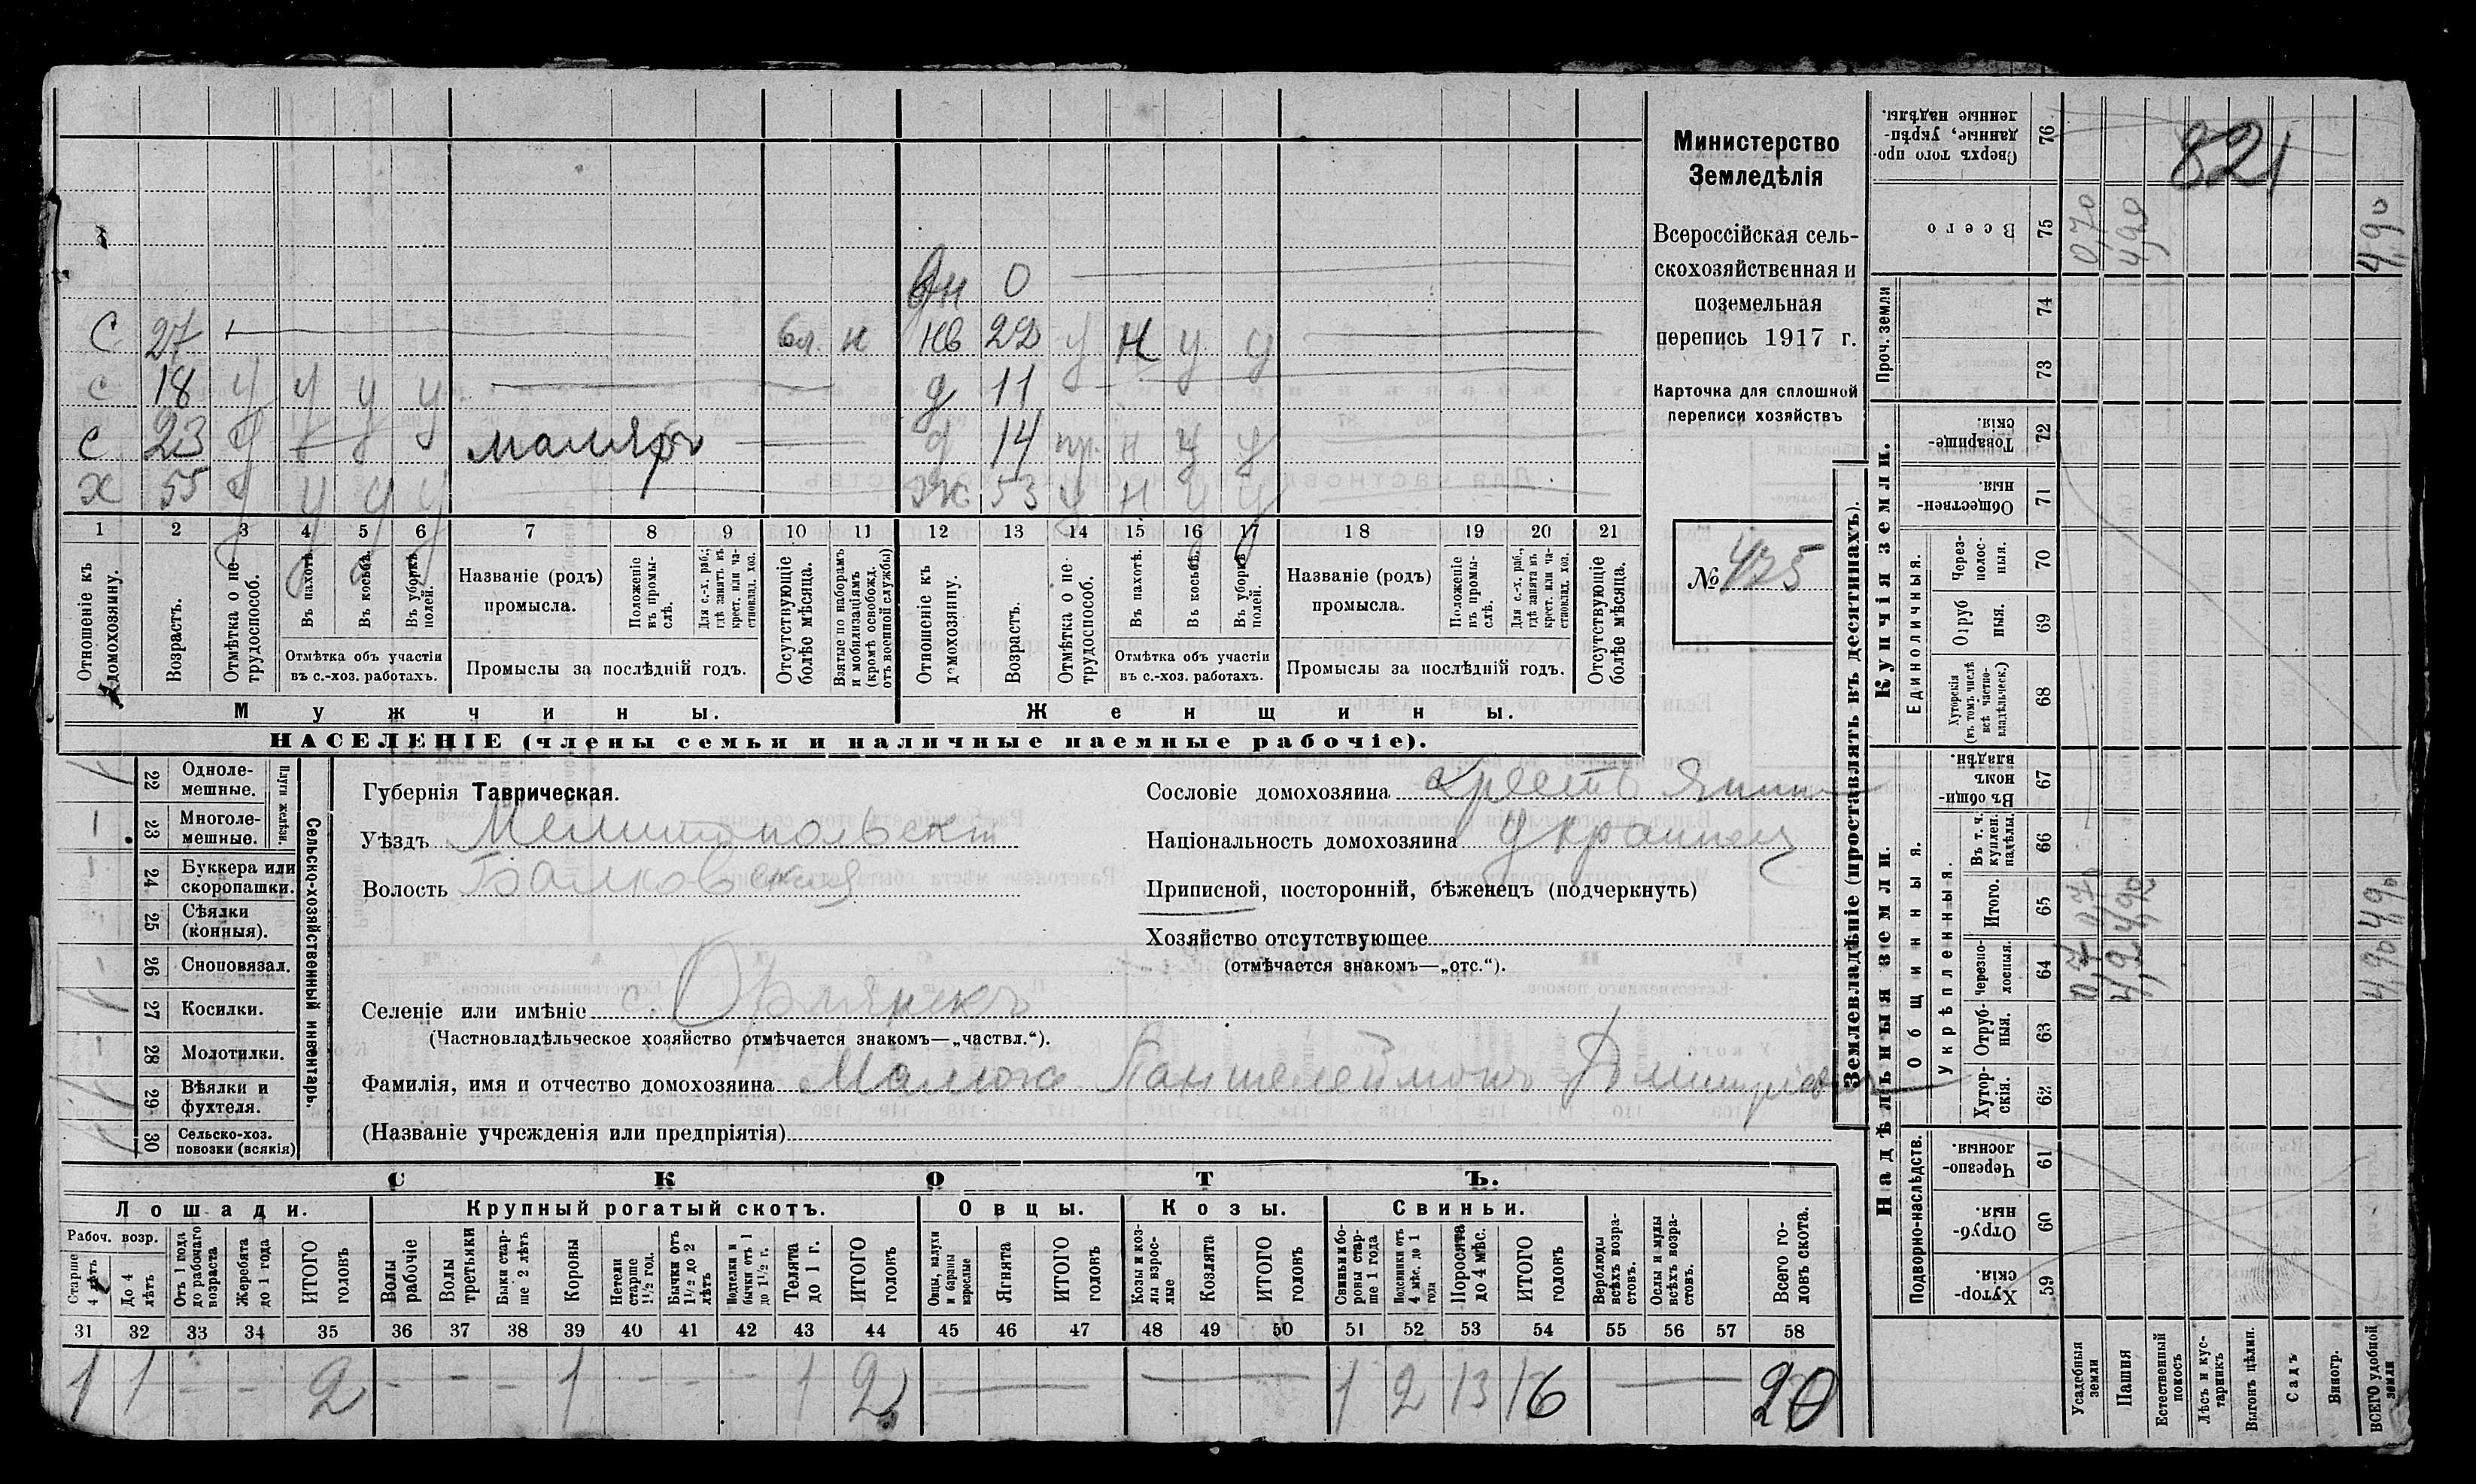 Министерство
Земледѣлія
Всероссійская сель-
скохозяйственная и
поземельная
перепись 1917 г.
Карточка для сплошной
переписи хозяйствъ
№ 425
дн 0
С 27 бл. н нв 22 у н у у
с 18 у у у у д 11
с 23 маляръ д 14 пр. н у у
х 55 у у у ж 53 у н у у
1 2 3 4 5 6 7 8 9 10 11 12 13 14 15 16 17 18 19 20 21
Отношеніе къ домохозяину.
Возрастъ.
Отмѣтка о нетрудоспособ.
Въ пахотѣ.
Въ косьбѣ.
Въ уборкѣ полей.
Отмѣтка объ участіи
въ с.-хоз. работахъ.
Названіе (родъ)
промысла.
Положеніе въ промы-слѣ.
Для с.-х. раб.; гдѣ занятъ въ крест. или ча-стновлад. хоз.
Промыслы за послѣдній годъ.
Отсутствующіе болѣе мѣсяца.
Взятые по наборамъ и мобилизаціямъ (кромѣ освобожд. отъ военной службы)
Отношеніе къ домохозяину.
Возрастъ.
Отмѣтка о не-трудоспособ.
Въ пахотѣ.
Въ косьбѣ.
Въ уборкѣ полей.
Отмѣтка объ участіи
въ с.-хоз. работахъ.
Названіе (родъ)
промысла.
Положеніе въ промы-слѣ.
Для с.-х. раб., гдѣ занята въ крест. или ча-стновлад. хоз.
Промыслы за послѣдній годъ.
Отсутствующіе болѣе мѣсяца.
Мужчины.
Женщины.
НАСЕЛЕНІЕ (члены семьи и наличные наемные рабочіе).
Сельско-хозяйственный инвентарь.
Плуги желѣзн.
22 Одноле-
мешные.
23 Многоле-
мешные.
24 Буккера или
скоропашки.
25 Сѣялки
(конныя).
26 Сноповязал.
27 Косилки.
28 Молотилки.
29 Вѣялки и
фухтеля.
30 Сельско-хоз.
повозки (всякія)
Губернія Таврическая.
Уѣздъ Мелитопольскій
Волость Балковская
Селеніе или имѣніе с. Орлянскъ
(Частновладѣльческое хозяйство отмѣчается знакомъ—„частвл.“).
Фамилія, имя и отчество домохозяина Малюга Пантелеймонъ Дмитріев
(Названіе учрежденія или предпріятія)
Сословіе домохозяина крестьянин
Національность домохозяина украинец
Приписной, посторонній, бѣженецъ (подчеркнуть)
Хозяйство отсутствующее
(отмѣчается знакомъ—„отс.“).
СКОТЪ.
Лошади.
Крупный рогатый скотъ.
Овцы.
Козы.
Свиньи.
Рабоч. возр.
Старше 4 лѣтъ
До 4 лѣтъ
Отъ 1 года до рабочаго возраста
Жеребята до 1 года
ИТОГО головъ
Волы рабочіе
Волы третьяки
Быки стар-ше 2 лѣтъ
Коровы
Нетели старше 1½ год.
Бычки отъ 1½ до 2 лѣтъ
Подтелки и бычки отъ 1 до 1½ г.
Телята до 1 г.
ИТОГО головъ
Овцы, валухи и бараны взрослые
Ягнята
ИТОГО головъ
Козы и коз-лы взрос-лые
Козлята
ИТОГО головъ
Свиньи и бо-ровы стар-ше 1 года
Подсвинки отъ 4 мѣс. до 1 года
Поросята до 4 мѣс.
ИТОГО головъ
Верблюды всѣхъ возра-стовъ.
Ослы и мулы всѣхъ возра-стовъ.
Всего го-ловъ скота.
31 32 33 34 35 36 37 38 39 40 41 42 43 44 45 46 47 48 49 50 51 52 53 54 55 56 57 58
1 1 - - 2 - - - 1 - - - 1 2 — — 1 2 13 16 — 20
Землевладѣніе (проставлять въ десятинахъ).
Надѣльныя земли.
Купчія земли.
Проч. земли
Подворно-наслѣдств.
Общинныя.
Укрѣпленныя.
Единоличныя.
Сверхъ того про-данные, укрѣп-ленные надѣлы. 76
Всего 75
74
73
Товарище-скія. 72
Обществен-ныя. 71
Через-полос-ныя. 70
Отруб-ныя. 69
Хуторскія (въ томъ числѣ всѣ частно-владѣльческ.) 68
Въ общин-номъ владѣн. 67
Въ т. ч. куплен. надѣлы. 66
Итого. 65
Черезпо-лосныя. 64
Отруб-ныя. 63
Хутор-скія. 62
Черезпо-лосныя. 61
Отруб-ныя. 60
Хутор-скія. 59
Усадебныя земли
Пашня
Естественный покосъ
Лѣсъ и кус-тарникъ
Выгонъ цѣлин.
Садъ
Виногр.
ВСЕГО удобной земли
821
0,70
4,20
4,90
4,90 4,90